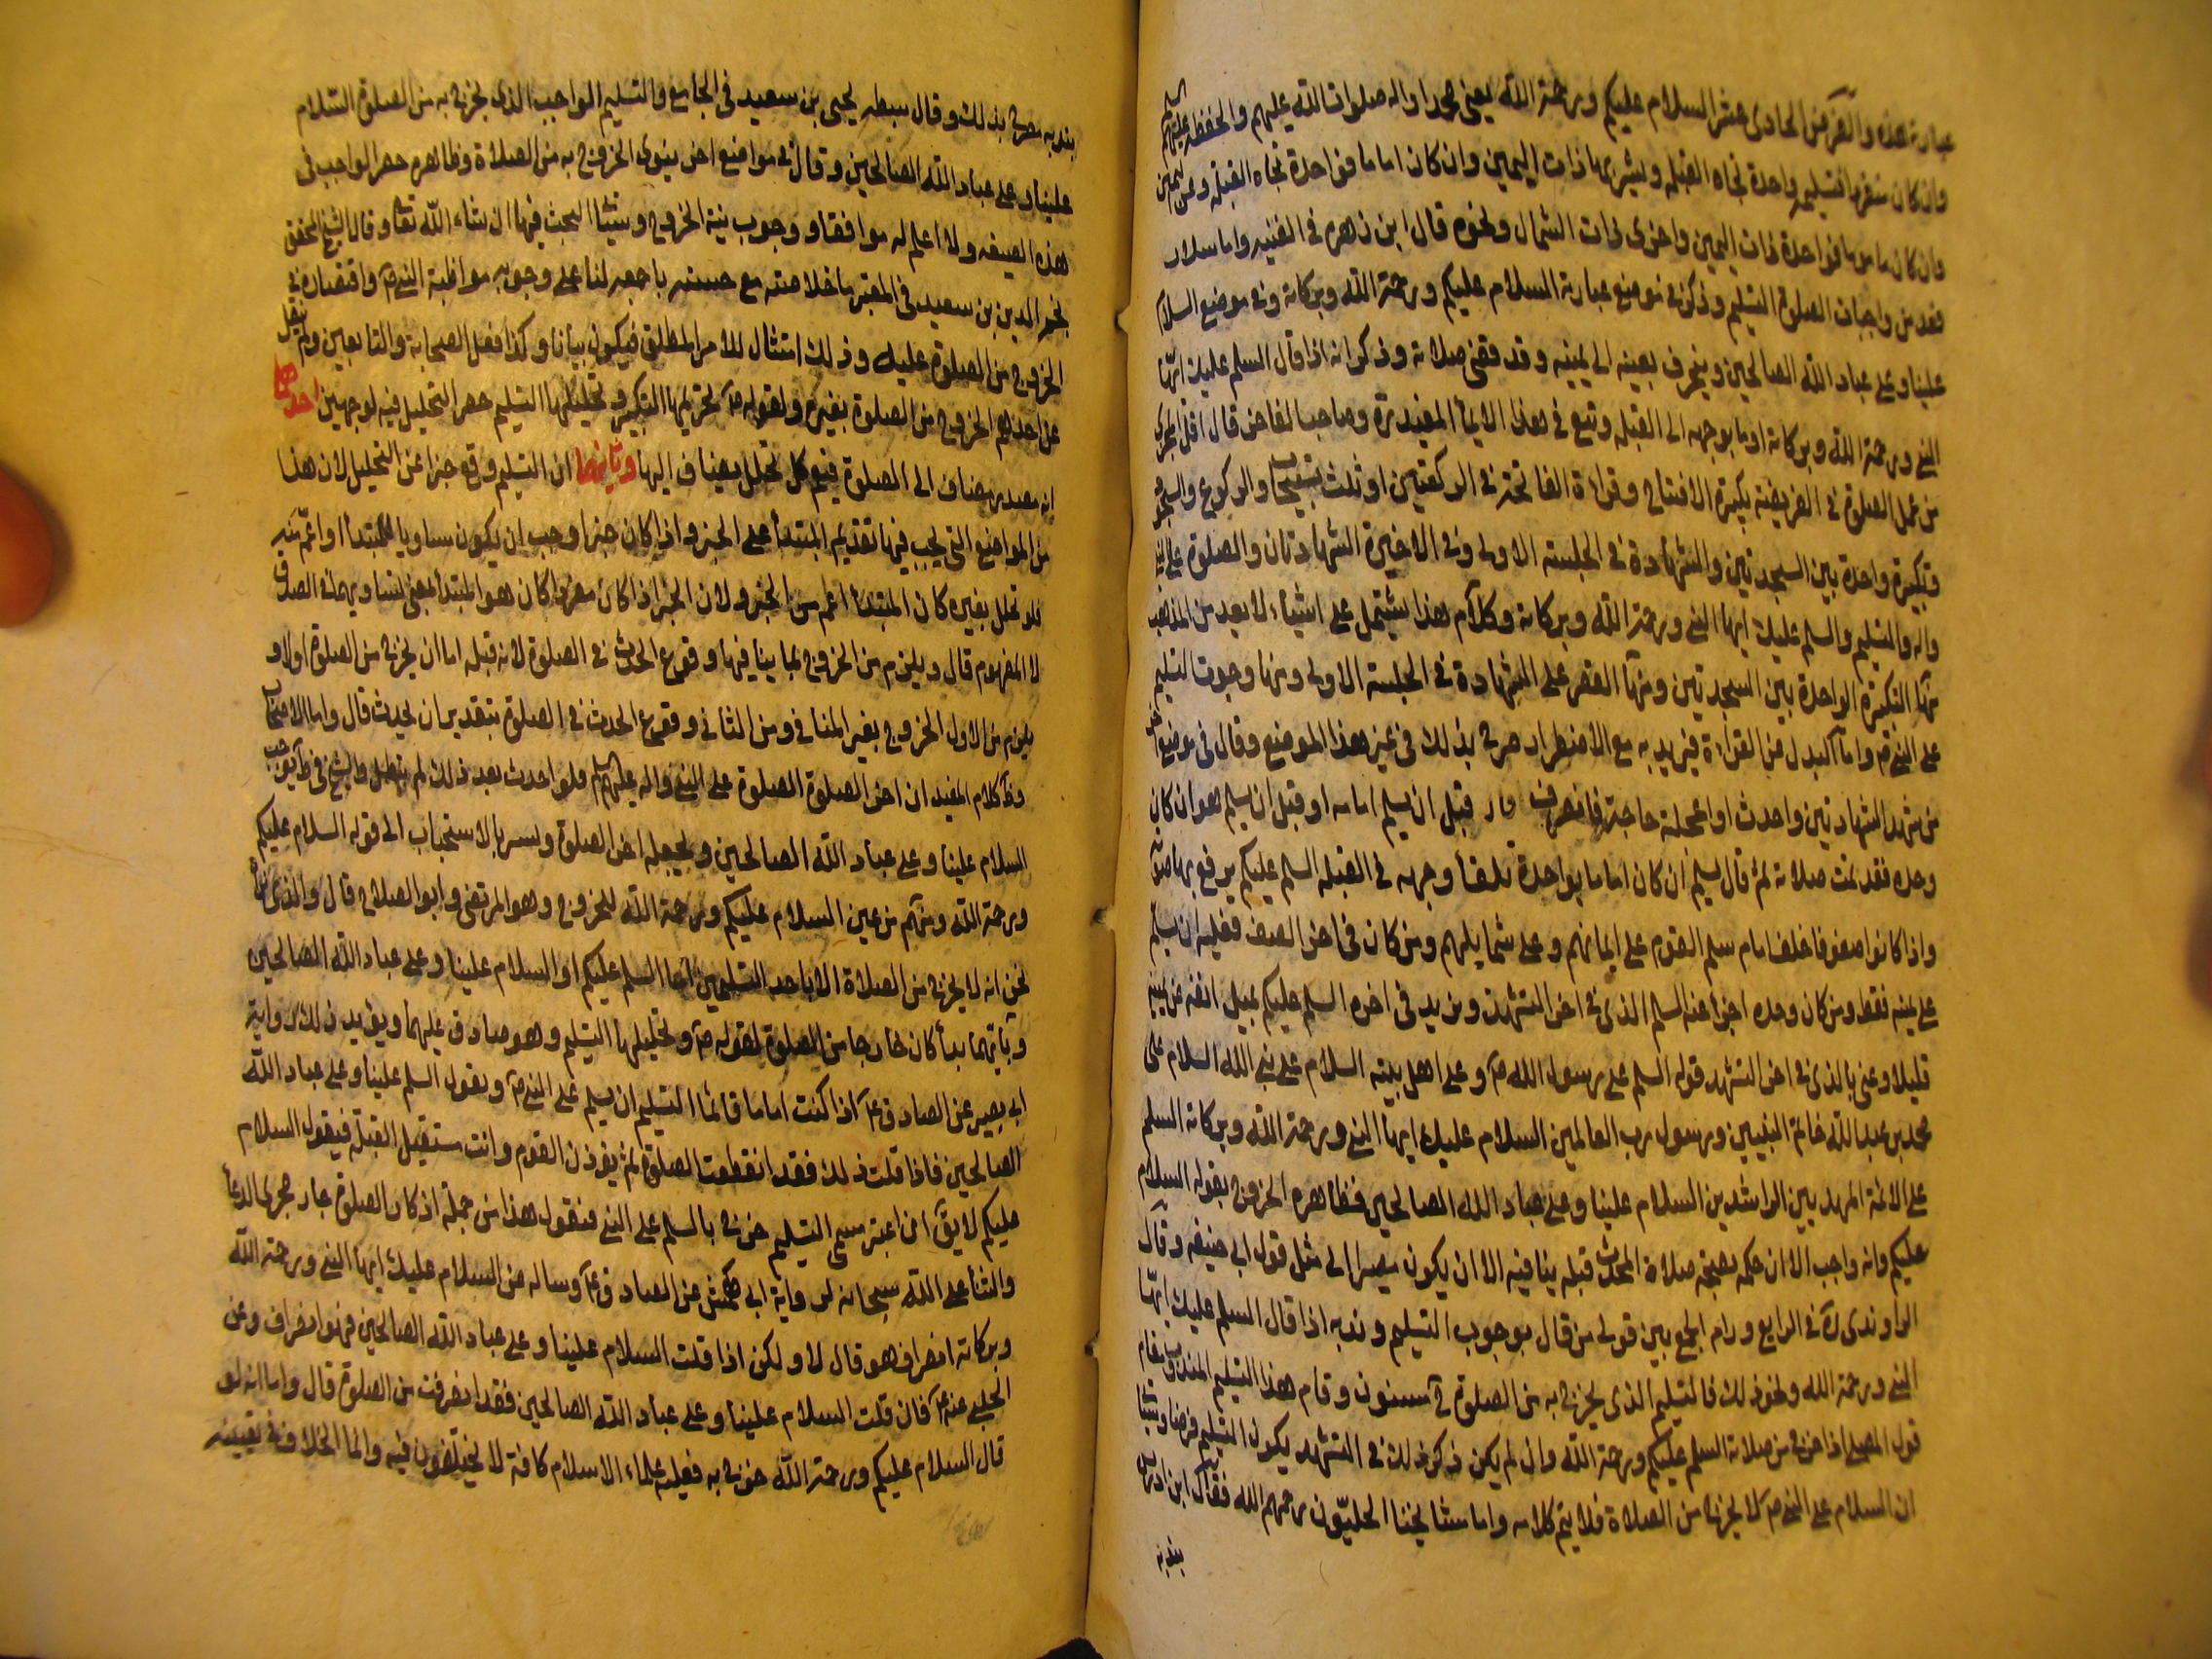 عبارة هذه والفرض الحادى عشر السلام عليكم ورحمة الله يعنى محمدا واله صلوات الله عليهم والحفظة عليهم السلم
وان كان منفردا فتسليمه واحدة تجاه القبلة ويشير بها ذات اليمين وان كان اماما فواحدة تجاه القبلة وعن اليمين
وان كان ماموما فواحدة ذات اليمين واخرى ذات الشمال ونحوه قال ابن زهره فى الغنيه واما سلار
فعد من واجبات الصلوة التسليم وذكر فى موضع عبارته السلام عليكم ورحمة الله وبركاته وفى موضع السلام
علينا وعلى عباد الله الصالحين وينحرف بعينه الى يمينه وقد فقضى صلاته وذكر انه اذا قال السلم عليك ايها
النبى ورحمة الله وبركاته اوما بوجهه الى القبلة وتبع فى هذا الايمأ المفيد ره وصاحب الفاخر قال اقل المجزى
من عمل الصلوة فى الفريضة تكبيرة الافتتاح وقراءة الفاتحة فى الركعتين او ثلث تسبيحات والركوع والسجود
وتكبيرة واحدة بين السجدتين والشهادة فى الجلسة الاولى وفى الاخيرة الشهادتان والصلوة على النبى
واله والتسليم والسلم عليك ايها النبى ورحمة الله وبركاته وكلام هذا يشتمل على اشياء لا يعد من المذهب
منها التكبيرة الواحدة بين السجدتين ومنها القصر على الشهادة فى الجلسة الاولى ومنها وجوب التسليم
على النبى ص واما البدل من القراءة فيريد به مع الاضطرار صرح بذلك فى غير هذا الموضع وقال فى موضع اخر
من شهد الشهادتين واحدث او اعجلته حاجة فانصرف قبل ان يسلم امامه او قبل ان يسلم هو ان كان
وحده فقد تمت صلاته ثم قال يسلم ان كان اماما بواحدة تلقأ وجهه فى القبلة السلم عليكم يرفع بها صوته
واذا كانوا صفوفا خلف امام سلم القوم على ايمانهم وعلى شمايلهم ومن كان فى اخر الصف فعليه ان يسلم
على يمينه فقط ومن كان وحده اجزأ عنه السلم الذى فى اخر التشهد ويزيد فى اخره السلم عليكم يميل انفه عن يمينه
قليلا وعنى بالذى فى اخر التشهد قوله السلم على رسول الله ص وعلى اهل بيته السلام على نبى الله السلام على
محمد بن عبد الله خاتم النبيين ورسول رب العالمين السلام عليك ايها النبى ورحمة الله وبركاته السلم
على الائمة المهديين الراشدين السلام علينا وعلى عباد الله الصالحين فظاهره الخروج بقوله السلام
عليكم وانه واجب الا ان حكمه بصحة صلاة المحدث قبله ينافيه الا ان يكون مصيرا الى مثل قول ابى حنيفه وقال
الراوندى ره فى الرابع ورام الجمع بين قولى من قال بوجوب التسليم وندبه اذا قال السلم عليك ايها
النبى ورحمة الله ونحو ذلك فالتسليم الذى يخرج به من الصلوة ح مسنون وقام هذا التسليم المندوب مقام
قول المصلى اذا خرج من صلاته السلم عليكم ورحمة الله وان لم يكن ذكر ذلك فى التشهد يكون التسليم فرضا
ان السلام على النبى ص لا يخرج من الصلاة فلا يتم كلامه واما مشايخنا الحليّون رحمهم الله فقال ابن ادريس
بندبه
بندبه مصرح بذلك وقال سبطه يحيى بن سعيد فى الجامع والتسليم الواجب الذى يخرج به من الصلوة السلام
علينا وعلى عباد الله الصالحين وقال فى مواضع اخر ينوى الخروج به من الصلاة وظاهره حصر الواجب فى
هذه الصيغه ولا اعلم له موافقا ووجوب نية الخروج وسيأتى البحث فيها ان شاء الله تعا وقال الشيخ المحقق
نجم الدين بن سعيد فى المعتبر ما خلاصته مع حسنه باجمعه لنا على وجوبه مواظبة النبى ص واقتصاره فى
الخروج من الصلوة عليه وذلك امتثال للامر المطلق فيكون بيانا وكذا فعل الصحابة والتابعين ولم ينقل
عن احدهم الخروج من الصلوة بغيره ولقوله ص تحريمها التكبير وتحليلها التسليم حصر التحليل فيه لوجهين احدهما
انه مصدر مضاف الى الصلوة فيعم كل تحليل يضاف اليها وثانيهما ان التسليم وقع خبرا عن التحليل لان هذا
من المواضع التى يجب فيها تقديم المبتدأ على الخبر واذا كان خبرا وجب ان يكون مساويا للمبتدأ او اعم منه
فلو تحلل بغيره كان المبتدأ اعم من الخبر ولان الخبر اذا كان مفردا كان هو المبتدأ بمعنى تساويهما فى الصدق
لا المفهوم قال ويلزم من الخروج بما ينافيها وقوع الحدث فى الصلوة لانه قبله اما ان يخرج من الصلوة اولا و
يلزم من الاول الخروج بغير المنافى ومن الثانى وقوع الحدث فى الصلوة بتقدير ان يحدث قال واما الاصحاب
وظ كلام المفيد ان اخر الصلوة الصلوة على النبى واله عليهم السلم فلو احدث بعد ذلك لم تبطل والشيخ فى ط يوجب
السلام علينا وعلى عباد الله الصالحين ويجعله اخر الصلوة ويسمى بالاستحباب الى قوله السلام عليكم
ورحمة الله ومنهم من عين السلام عليكم ورحمة الله للخروج وهو المرتضى وابو الصلاح قال والذى
نحن انه لا يخرج من الصلاة الا باحد التسليمين اما السلم عليكم او السلام علينا وعلى عباد الله الصالحين
وبايهما بدأ كان خارجا من الصلوة لقوله ص وتحليلها التسليم وهو صادق عليهما ويؤيد ذلك رواية
ابى بصير عن الصادق ع اذا كنت اماما فانما التسليم ان يسلم على النبى ص ويقول السلم علينا وعلى عباد الله
الصالحين فاذا قلت ذلك فقد انقطعت الصلوة ثم يؤذن القوم وانت مستقبل القبلة فيقول السلام
عليكم لا يق من اعتبر سمى التسليم خرج بالسلم على النبى فنقول هذا من جملة اذكار الصلوة جار مجرى الدعأ
والثنأ على الله سبحانه لرواية ابى كهمش عن الصادق ع وساله عن السلام عليك ايها النبى ورحمة الله
وبركاته انصراف هو قال لا ولكن اذا قلت السلام علينا وعلى عباد الله الصالحين فهو انصراف وعن
الحلبى عنه ع فان قلت السلام علينا وعلى عباد الله الصالحين فقد انصرفت من الصلوة قال واما انه لو
قال السلام عليكم ورحمة الله خرج به فعليه علماء الاسلام كافة لا يختلفون فيه وانما الخلاف فى تعيينه